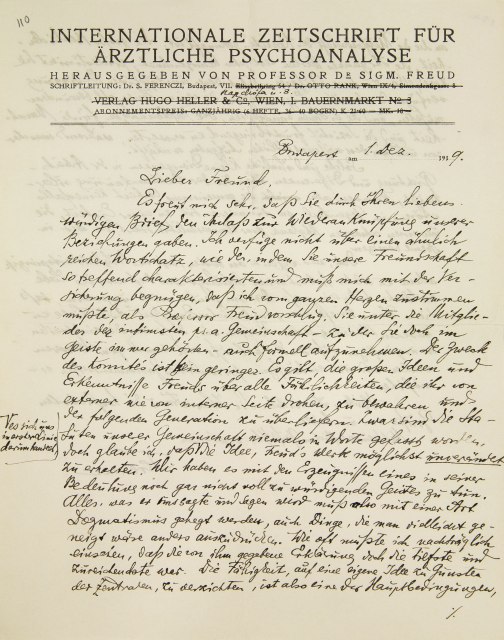 110
INTERNATIONALE ZEITSCHRIFT FÜR
ÄRZTLICHE PSYCHOANALYSE
HERAUSGEGEBEN VON PROFESSOR DR SIGM. FREUD
SCHRIFTLEITUNG: DR. S. FERENCZI, Budapest, VII. Elisabethring 54 / DR. OTTO RANK, Wien IX/4, Simondenkgasse 8
Nagydiófa u. 3.
VERLAG HUGO HELLER & Co, WIEN, I. BAUERNMARKT No 3
ABONNEMENTSPREIS: GANZJÄHRIG (6 HEFTE, 36–40 BOGEN) K 21·60 = MK. 18·—
Budapest am 1. Dez. 1919.
Lieber Freund,
Es freut mich sehr, daß Sie durch Ihren liebens
würdigen Brief den Anlaß zur Wiederanknüpfung unserer
Beziehungen gaben. Ich verfüge nicht über einen ähnlich
reichen Wortschatz, wie der, in dem Sie unsere Freundschaft
so treffend charakterisierten und muß mich mit der Ver-
sicherung begnügen, daß ich vom ganzen Herzen zustimmen
mußte, als Professor Freud vorschlug, Sie unter die Mitglie-
der der intimsten ps.a. Gemeinschaft – zu der Sie doch im
Geiste immer gehörten – auch formell aufzunehmen. Der Zweck
des Komités ist kein geringer. Es gilt die großen Ideen und
Erkenntnisse Freuds über alle Fährlichkeiten, die ihr von
externer wie von interner Seite drohen, zu bewahren und
der folgenden Generation zu überliefern. Zwar sind die Sta-
tuten unserer Gemeinschaft niemals in Worte gefasst worden,
doch glaube ich, daß die Idee, Freud's Werk möglichst unverändert
zu erhalten,
uns
Wir haben es mit den Erzeugnissen eines in seiner
Bedeutung noch gar nicht voll zu würdigenden Geistes zu tun.
Alles, was er uns sagte und sagen wird muß also mit einer Art
Dogmatismus gehegt werden, auch Dinge, die man vielleicht ge-
neigt wäre anders auszudrücken. Wie oft mußte ich nachträglich
einsehen, daß die von ihm gegebene Erklärung doch die tiefste und
zureichendste war. Die Fähigkeit, auf eine eigene Idee zu Gunsten
der zentralen, zu verzichten, ist also eine der Hauptbedingungen,
./.